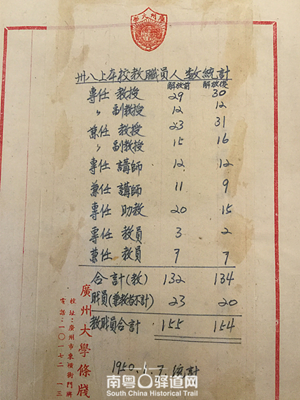 卅八上本校教職員人數統計
解放前 解放後
專任 教授 29 30
〃 副教授 12 12
兼任 教授 23 31
〃 副教授 15 16
專任 講師 12 12
兼任 講師 11 9
專任 助教 20 15
專任 教員 3 2
兼任 教員 7 7
合計(教) 132 134
職員(兼教者不計) 23 20
教職員合計 155 154
統計
廣州大學條牋
校址:廣州市東橫街門牌
電話:一〇一七二
南粤古驿道网
South China Historical Trail